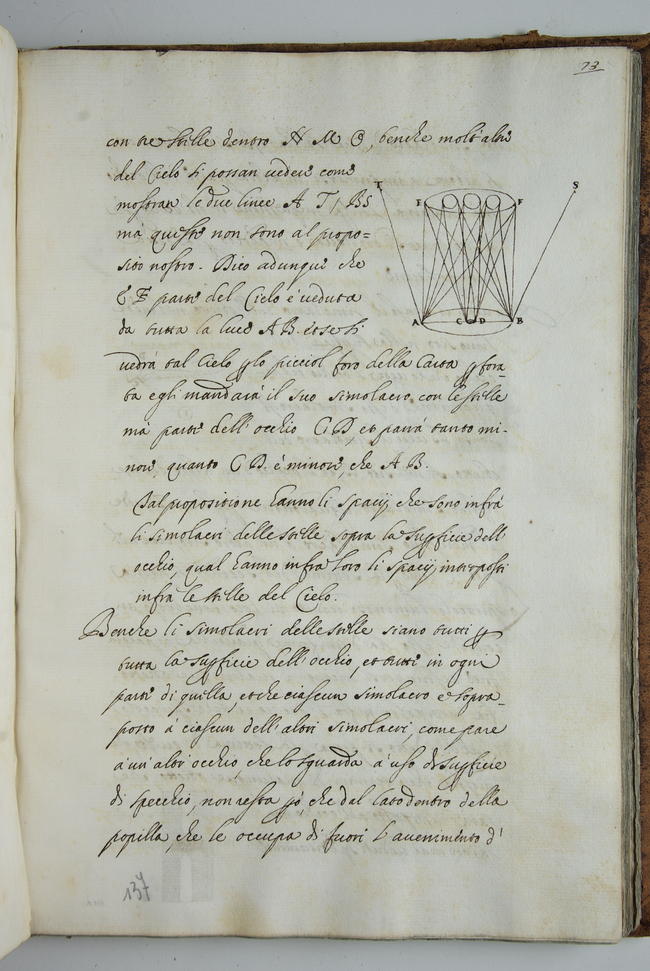 73
con tre stille dentro N M O, benche molt' altre
del Cielo si possan vedere come
mostran le due linee A T, B S
mà queste non sono al propo=
sito nostro. Dico adunque che
E F parte del Cielo è veduta
da tutta la luce A B. et se si
vedrà tal Cielo p lo picciol foro della Carta p fora=
ta egli mandarà il suo simolacro con le stille
mà parte dell' occhio C D, et parrà tanto mi-
nore, quanto C D. è minore, che A B.
Tal propositione hanno li spacij che sono infrà
li simolacri delle stille sopra la supficie dell'
occhio, qual hanno infra loro li spacij interposti
infrà le stille del Cielo.
Benche li simolacri delle stille siano tutti p
tutta la supficie dell' occhio, et tutti in ogni
parte di quella, et che ciascun simolacro è sopra-
posto à ciascun dell' altri simolacri, come pare
à un' altr' occhio, che lo sguarda à uso di supficie
di specchio, non resta pò, che dal lato dentro della
popilla, che le occupa di fuori l' avenimento d'
T S
E F
A C D B
137